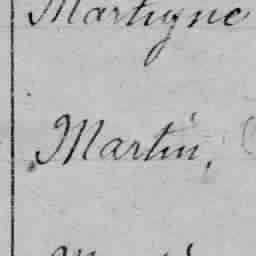 Martigne
Martin,